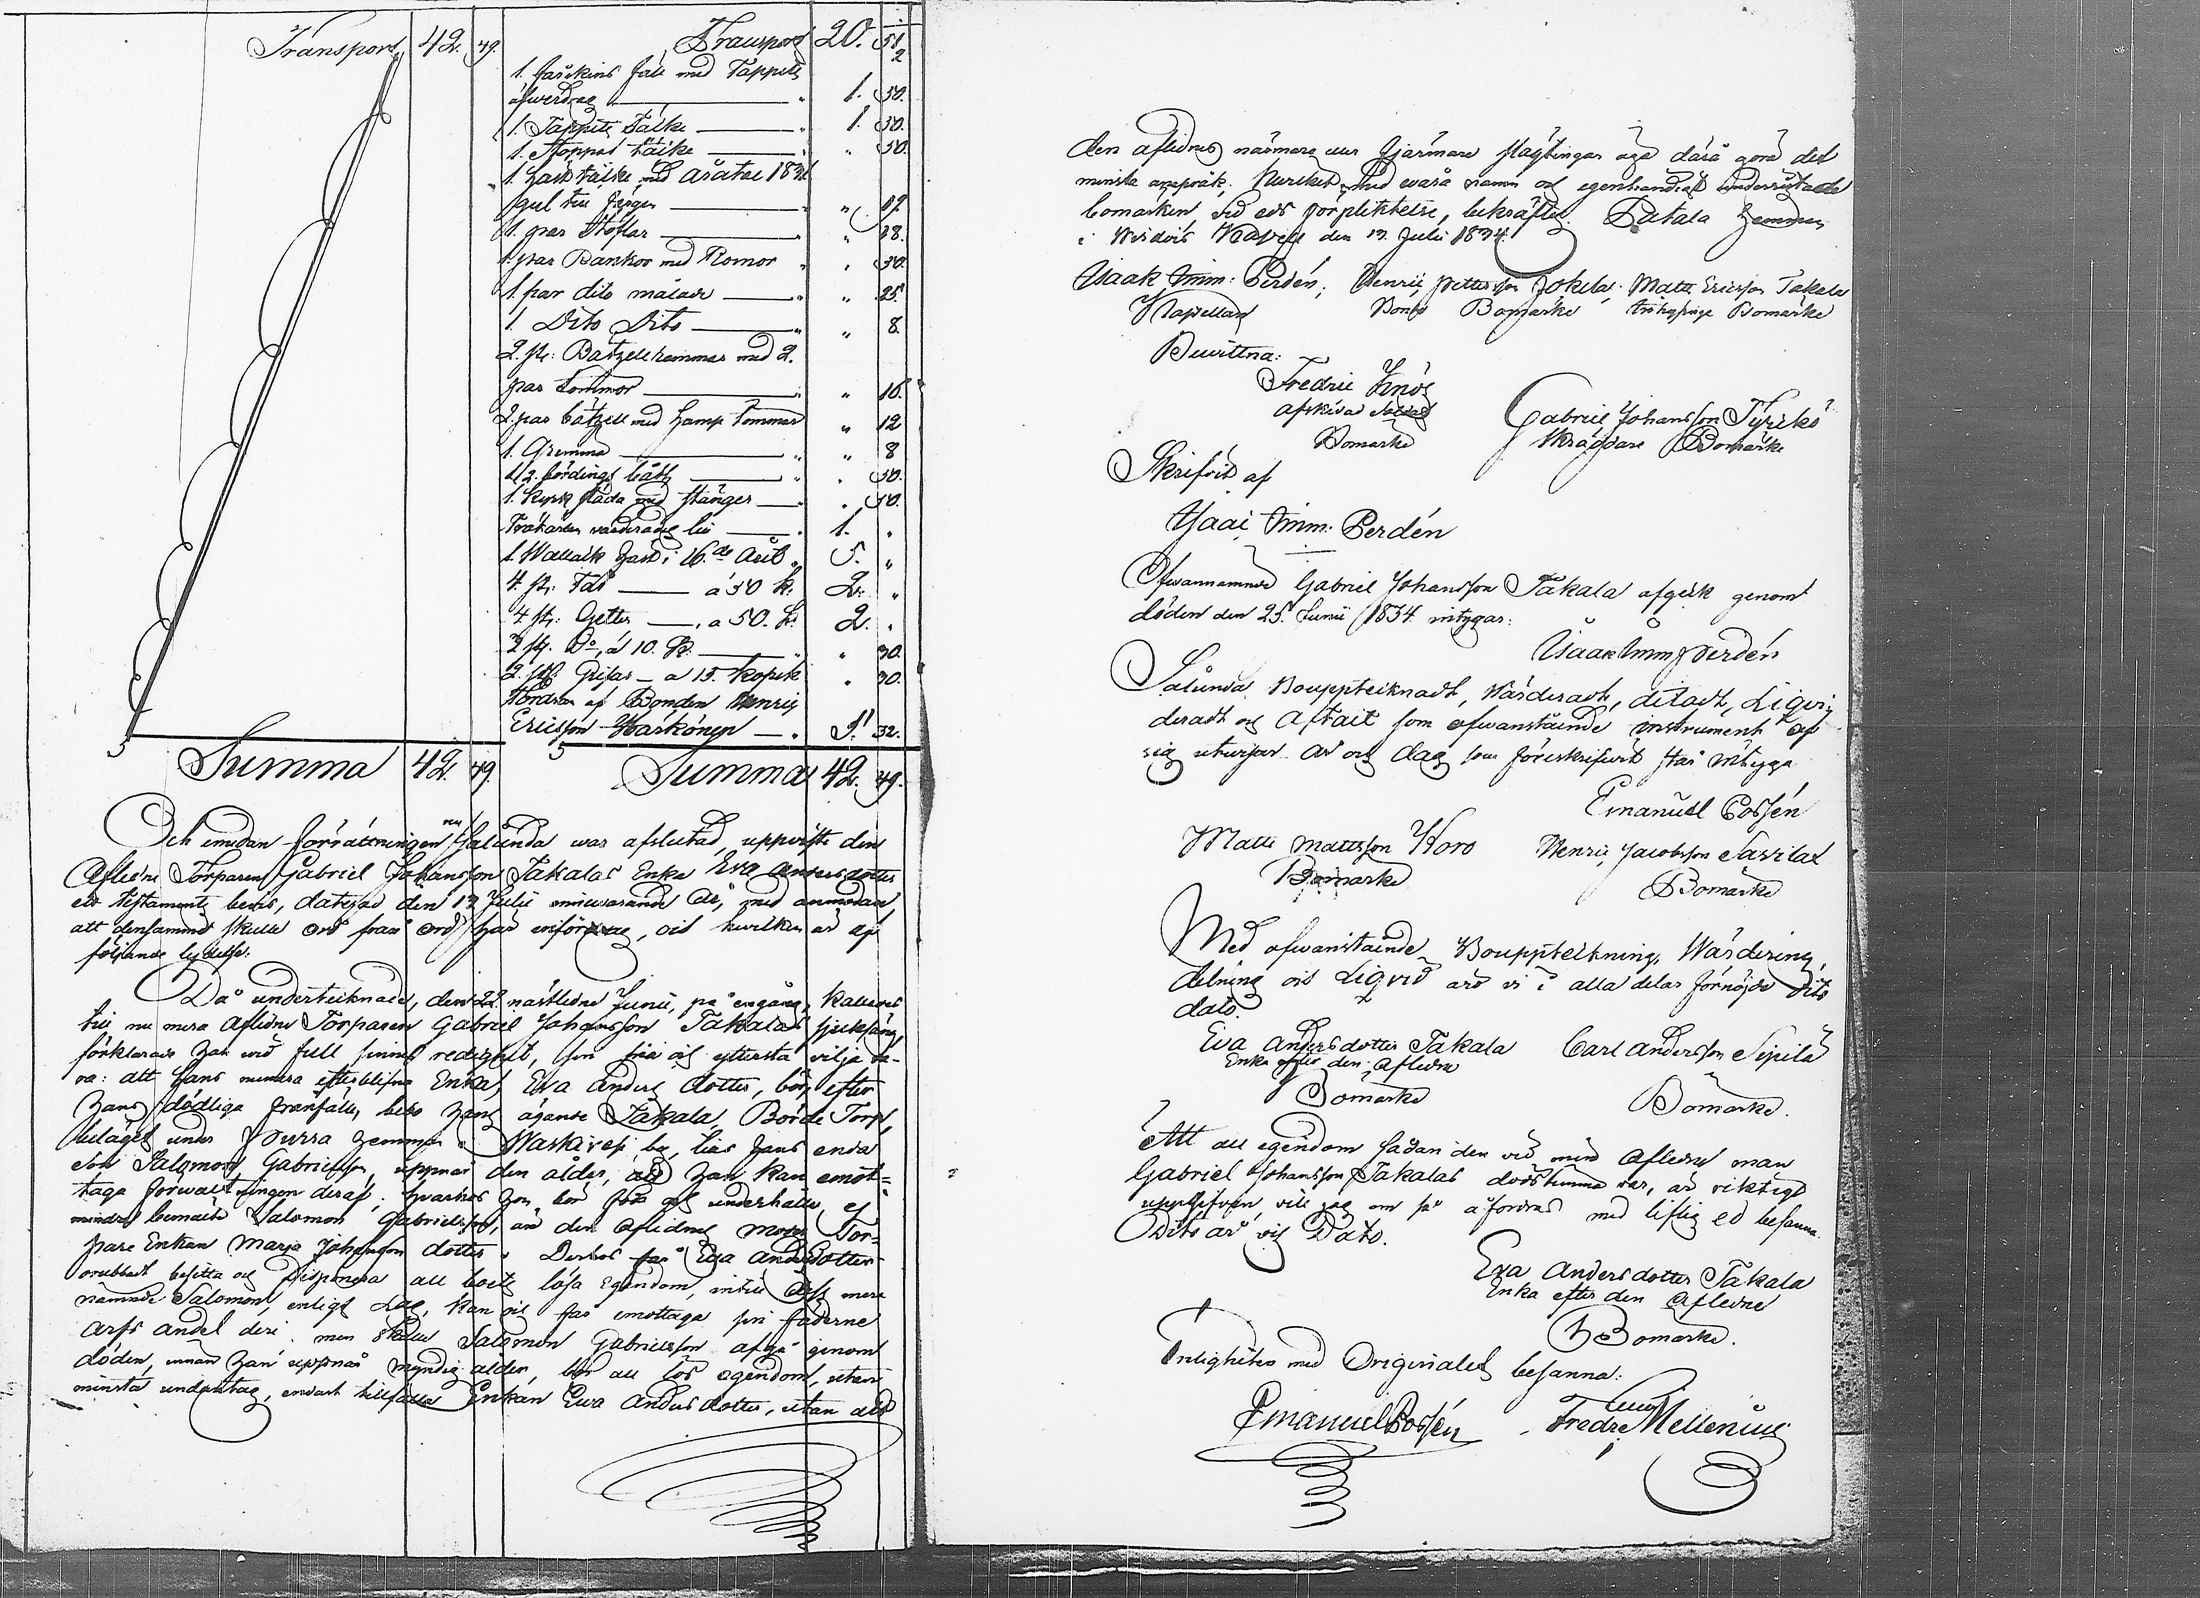 Transport 42. 49.
Transport 20. 51 2
1. fårskins fäll med Tappets
öfwerdrag " 1. 50.
1. Tappits Täcke " 1. 30.
1. Stoppat täcke " " 50.
1. täcke med åratal 1831
gul till färgen " " 19
1. par Stöflar " " 28.
1. par Bankor med Remor " " 30.
1. par dito målade " " 25.
1. Dito Dito " " 8.
2. st: Betzell remmar med 2.
par Tömmor " " 16.
2. par bätzell med Hamp tömmar " 12
1. Grimma " " 8
1/2. bördings båt " " 50.
1. Kyrk släda med stänger " " 50.
Träkärlen värderades till " 1. "
1. Wallack Häst i 16.de året " 5. "
4. st: Får á 50 k: 2. "
4 st: Getter á 50. k: 2. "
3 st. Do, á 10. k. " " 30.
2. st. Grisar á 15. kopek " 30.
Fordran af Bonden Henric
Ericsson Härkönen " 5. 32.
Summa 42. 49.
Summa 42. 49.
Och emedan förrättningen nu sålunda war afslutad, uppwiste den
Aflidne Torparen Gabriel Johansson Takalas Enka Eva Andersdotter
ett Testaments bevis, daterad den 13 Julii innewarande år, med anmodan
att densamma skulle ord från ord här införas, och hwilken är af
följande lydelse:
Då undertecknade, den 22 nästledne Junii, på engång kallades
till nu mera Aflidne Torparen Gabriel Johansson Takalas sjuksäng,
förklarade han wid full sinnes redighet, sin fria och yttersta vilja va-
ra: att hans numera efterblifna Enka, Eva Anders dotter, bör efter
hans dödliga frånfälle, bebo hans ägande Takala, Börde Torp,
beläget under Pourra hemman i Maskivesi by, tills hans enda
son Salomon Gabrielsson, uppnår den ålder, att han kan emot-
taga förwaltningen deraf; hvarhos hon bör föda och underhålla, ej
mindre bemälte Salomon Gabrielsson, än den aflidnes moder Tor-
pare Enkan Marja Johans dotter. Derhos får Eva Andersdotter
orubbadt besitta och disponera all boets lösa Egendom, intill dess mera
nämnde Salomon, enligt Lag, kan och får emottaga sin fäderne
arfs andel deri, men skulle Salomon Gabrielsson afgå genom
döden, innan han uppnår myndig ålder, bör all lös egendom, utan
minsta undantag, endast tillfalla Enkan Ewa Anders dotter, utan att
den aflidnes närmare eller fjärmare slägtingar äga derå göra det
minsta anspråk; hwilket med wåra namn och egenhändigt underritade
bomärken, wid eds förpliktelse, bekräftas. Takala Hemman
i Kapell den 13. Julii 1834.
Isaak Imm: Perdén; Henric Pettersson Jokela; Matts Ericsson Takala
Kapellan Bonde Bomärke Bomärke
Bewittna:
Fredric
afskedad Soldat
Bomärke
Gabriel Johansson Tyrikö
Skräddare Bomärke
Skrifwit af
Isaac Imm: Perdén
Ofwannämnde Gabriel Johansson Takala afgick genom
döden den 25. Junii 1834. intygar:
Isaak Imm Perdén
Sålunda Bouppteiknadt, Wärderadt, deladt, Liqvi-
deradt och Aftalt som ofwanstående instrument af
sig utwisar. År och dag som föreskrifwit står intyga
Emanuel Bossén
Matts Mattsson Koro Henric Jacobsson Särilax
Bomärke Bomärke
Med ofwanstående Bouppteikning, Wärdering,
delning och Liqvid äro vi i alla delar förnöjde Dito
dato.
Eva Andersdotter Takala Carl Andersson Sipilä
Enka efter den Aflidne
Bomärke Bomärke.
Att all egendom sådan den wid min Aflidnes man
Gabriel Johansson Takalas dödstimma war, är riktigt
uppgifwen, vill jag om så åfordras med liflig ed besanna
Dito år och Dato.
Eva Andersdotter Takala
Enka efter den Aflidne
Bomärke.
Enligheten med Originalet besanna:
Emanuel Bossén Fredric Mellenius